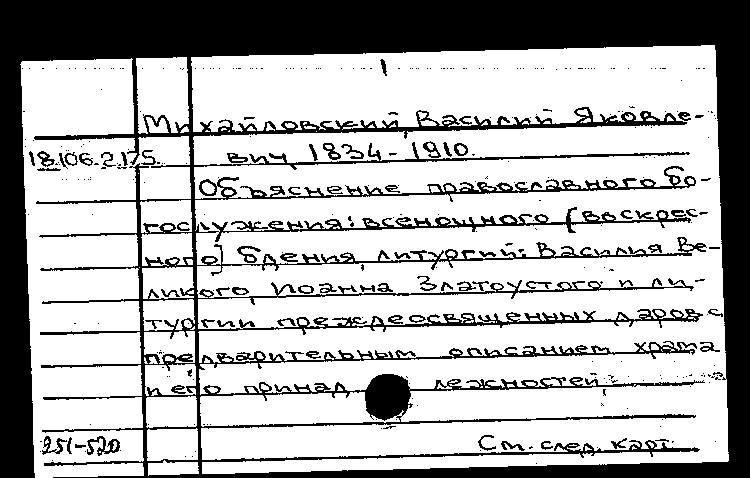 1
Михайловский, Василий Яковле-
18.106.2.175. вич, 1834-1910.
Объяснение православного бо-
гослужения: всенощного [воскрес-
ного] бдения, литургий: Василия Ве-
ликого, Иоанна Златоустого и ли-
тургии преждеосвященных даров с
предварительным описанием храма
и его принадлежностей:
251-520 См. след. карт.